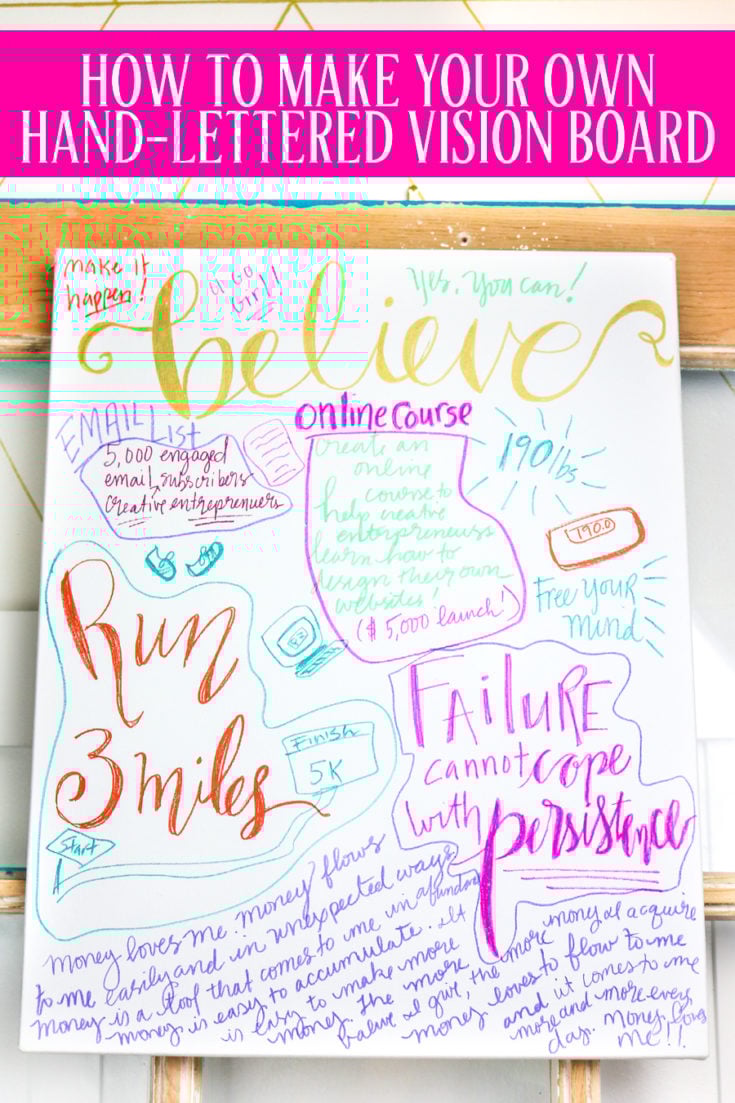 HOW TO MAKE YOUR OWN
HAND-LETTERED VISION BOARD
make it
happen!
u go
girl!
Yes, You can!
believe
EMAIL List
5,000 engaged
email subscribers
creative entreprenuers
online course
create an
online
course to
help creative
entrepreneurs
learn how to
design their own
websites!
($5,000 launch!)
190lbs
190.0
Free your
mind
Run
3 miles
Finish
5K
Start
FAILURE
cannot cope
with persistence
money loves me. money flows
to me easily and in unexpected ways
money is a tool that comes to me in
money is easy to accumulate. It
is easy to make more
money. The more
value I give, the more money I acquire
money loves to flow to me
and it comes to me
more and more every
day. money loves
me!!